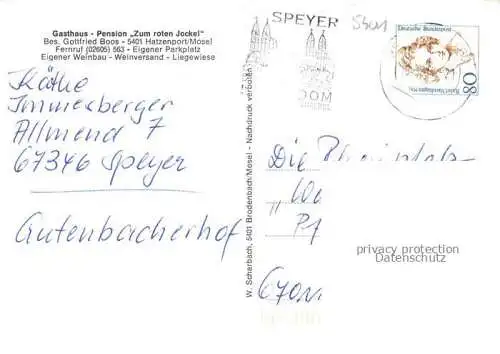 Gasthaus - Pension „Zum roten Jockel"
Bes. Gottfried Boos - 5401 Hatzenport/Mosel
Fernruf (02605) 563 - Eigener Parkplatz
Eigener Weinbau - Weinversand - Liegewiese
Käthe
Immesberger
Allmend 7
67346 Speyer
Gutenbacherhof
W. Scharbach, 5401 Brodenbach/Mosel - Nachdruck verboten
SPEYER
DOM
5401
Deutsche Bundespost
80
Die Rheinpfalz-
privacy protection
Datenschutz